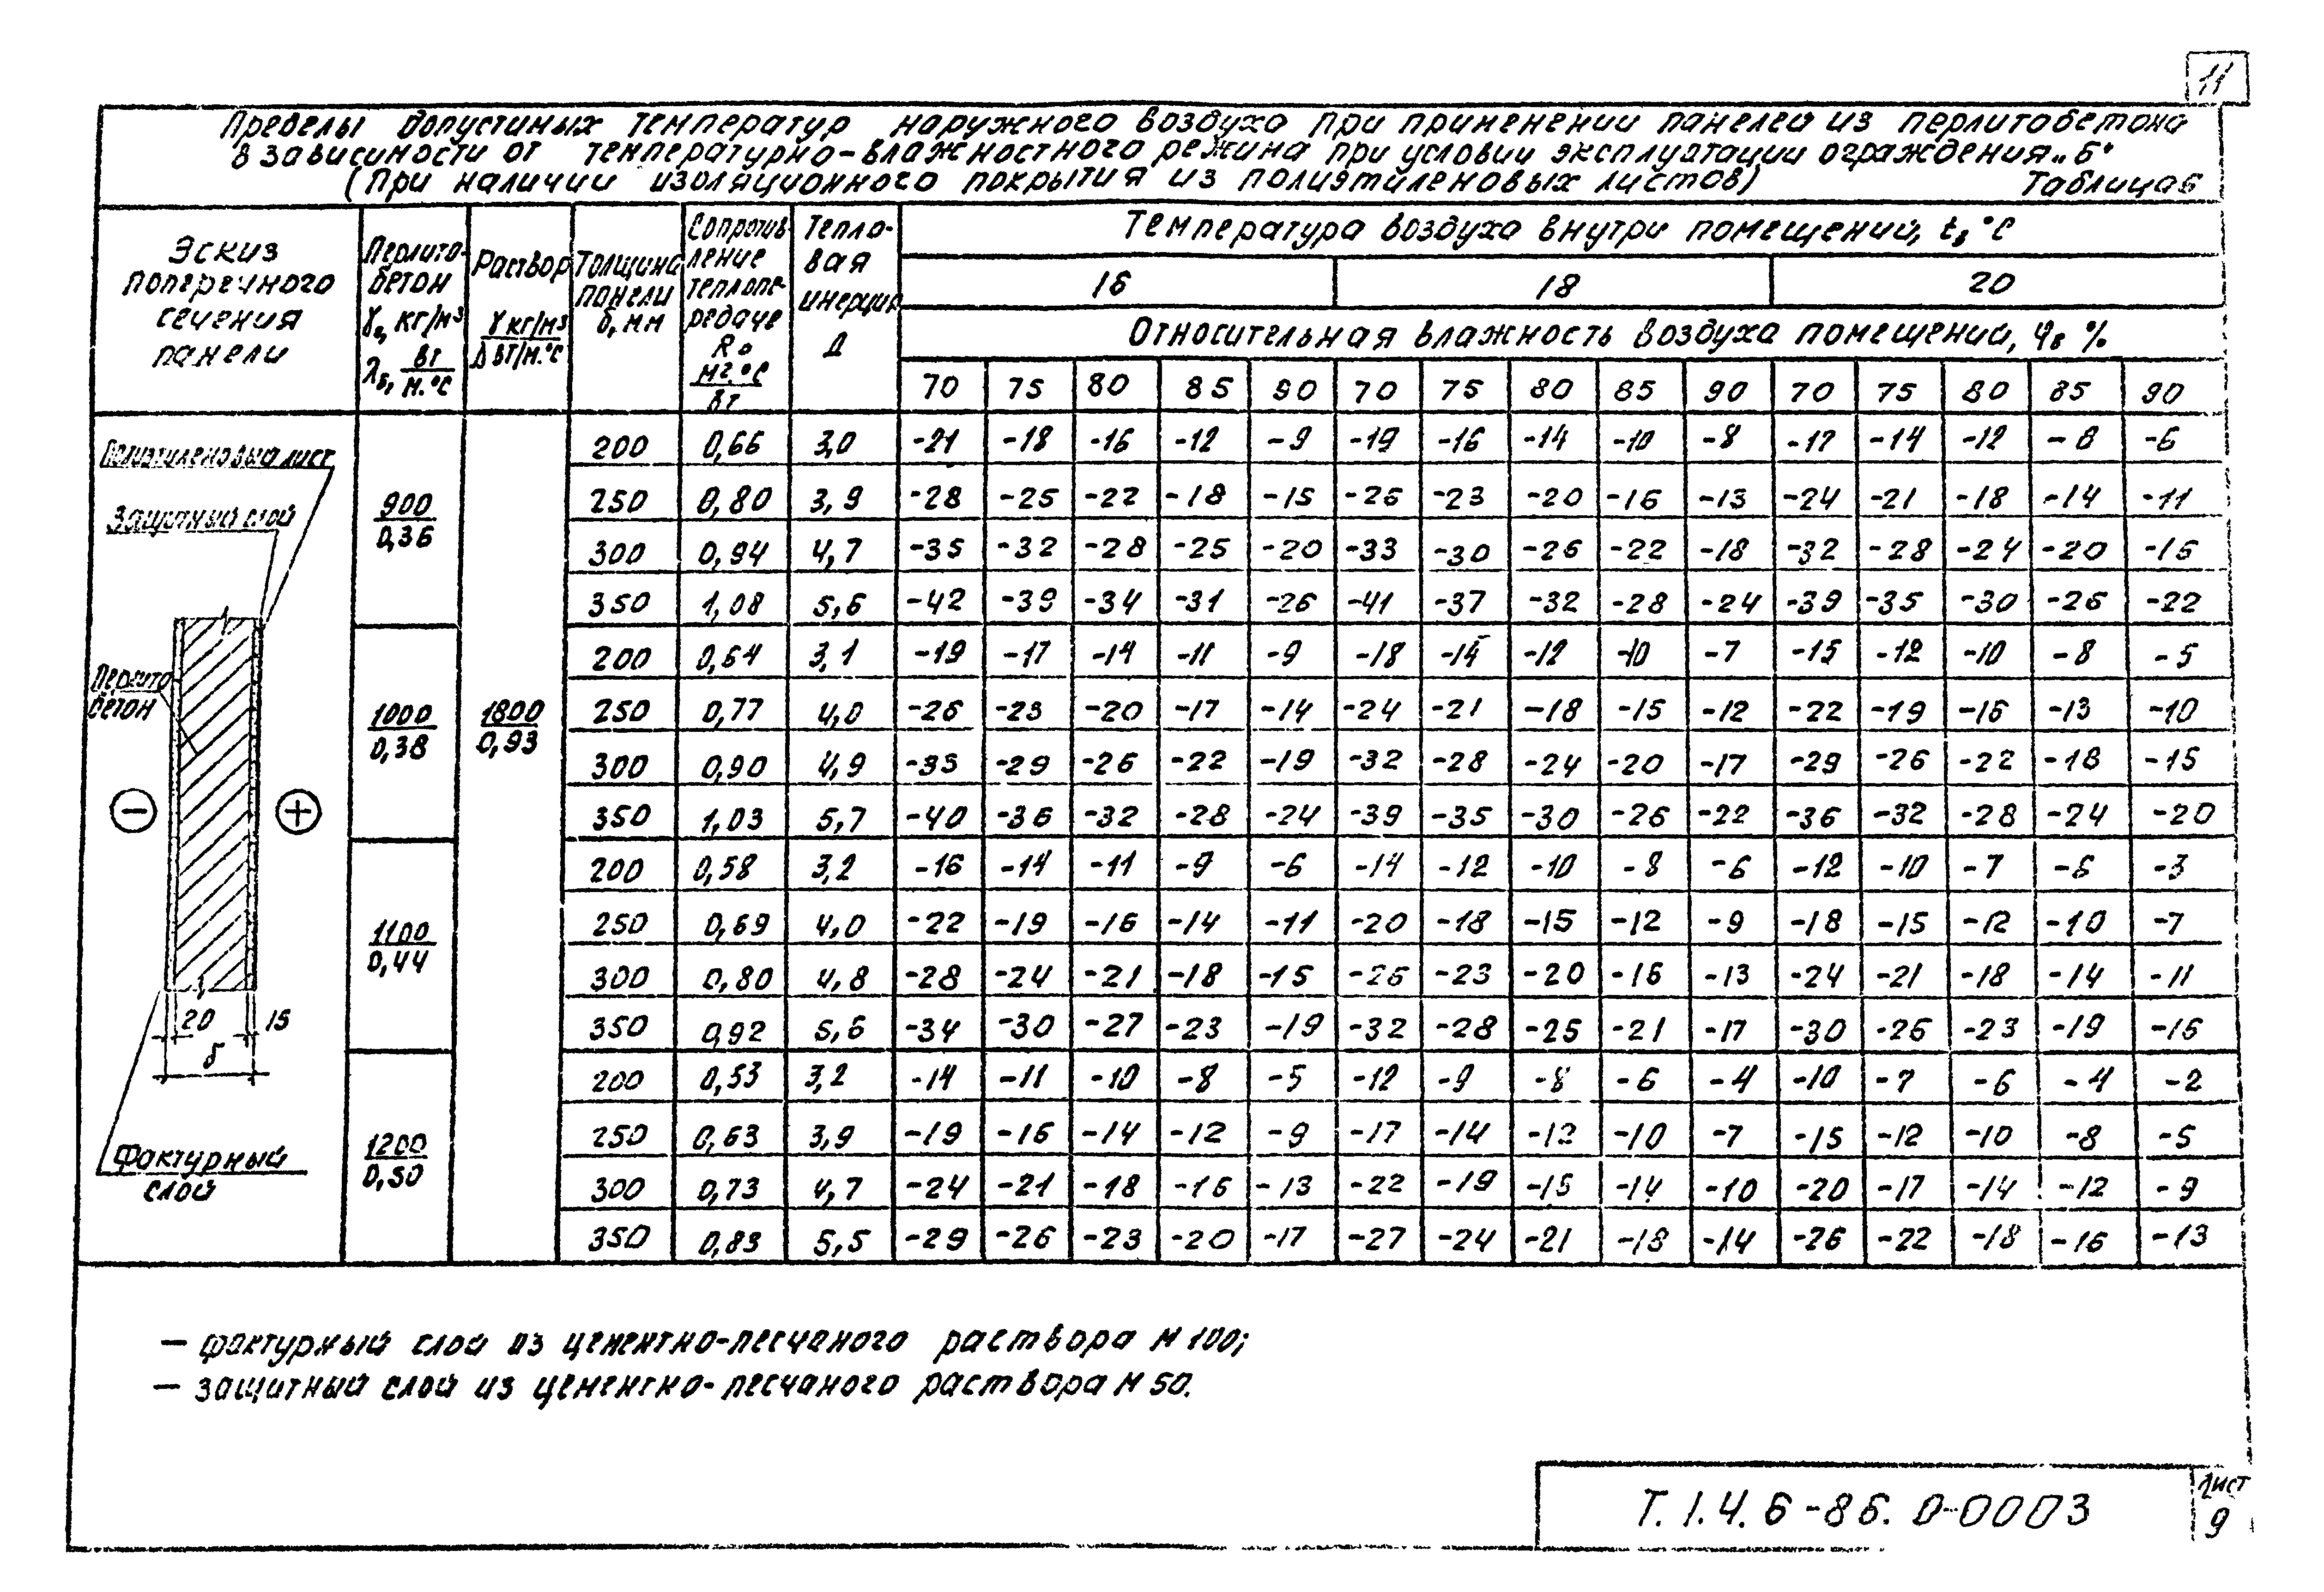 11
Пределы допустимых температур наружного воздуха при применении панелей из перлитобетона
в зависимости от температурно-влажностного режима при условии эксплуатации ограждения „Б"
(При наличии изоляционного покрытия из полиэтиленовых листов) Таблица 6
Эскиз поперечного сечения панели
Перлито-бетон γ, кг/м³ λб, вт/м.°С
Раствор γ кг/м³ λ вт/м.°С
Толщина панели δ, мм
Сопротив-ление теплопе-редаче Rо м².°С/вт
Тепло-вая инерция Д
Температура воздуха внутри помещений, tв °С
16 18 20
Относительная влажность воздуха помещений, φв %
70 75 80 85 90 70 75 80 85 90 70 75 80 85 90
Полиэтиленовый лист
Защитный слой
Перлито
бетон
− +
20 15
δ
Фактурный
слой
900/0,36
1800/0,93
200 0,66 3,0 -21 -18 -16 -12 -9 -19 -16 -14 -10 -8 -17 -14 -12 -8 -6
250 0,80 3,9 -28 -25 -22 -18 -15 -26 -23 -20 -16 -13 -24 -21 -18 -14 -11
300 0,94 4,7 -35 -32 -28 -25 -20 -33 -30 -26 -22 -18 -32 -28 -24 -20 -16
350 1,08 5,6 -42 -39 -34 -31 -26 -41 -37 -32 -28 -24 -39 -35 -30 -26 -22
1000/0,38
200 0,64 3,1 -19 -17 -14 -11 -9 -18 -14 -12 -10 -7 -15 -12 -10 -8 -5
250 0,77 4,0 -26 -23 -20 -17 -14 -24 -21 -18 -15 -12 -22 -19 -16 -13 -10
300 0,90 4,9 -33 -29 -26 -22 -19 -32 -28 -24 -20 -17 -29 -26 -22 -18 -15
350 1,03 5,7 -40 -36 -32 -28 -24 -39 -35 -30 -26 -22 -36 -32 -28 -24 -20
1100/0,44
200 0,58 3,2 -16 -14 -11 -9 -6 -14 -12 -10 -8 -6 -12 -10 -7 -6 -3
250 0,69 4,0 -22 -19 -16 -14 -11 -20 -18 -15 -12 -9 -18 -15 -12 -10 -7
300 0,80 4,8 -28 -24 -21 -18 -15 -26 -23 -20 -16 -13 -24 -21 -18 -14 -11
350 0,92 5,6 -34 -30 -27 -23 -19 -32 -28 -25 -21 -17 -30 -26 -23 -19 -16
1200/0,50
200 0,53 3,2 -14 -11 -10 -8 -5 -12 -9 -8 -6 -4 -10 -7 -6 -4 -2
250 0,63 3,9 -19 -16 -14 -12 -9 -17 -14 -12 -10 -7 -15 -12 -10 -8 -5
300 0,73 4,7 -24 -21 -18 -16 -13 -22 -19 -15 -14 -10 -20 -17 -14 -12 -9
350 0,83 5,5 -29 -26 -23 -20 -17 -27 -24 -21 -18 -14 -26 -22 -18 -16 -13
— фактурный слой из цементно-песчаного раствора М 100;
— защитный слой из цементно-песчаного раствора М 50.
Т.1.4.6-86.0-0003
Лист
9